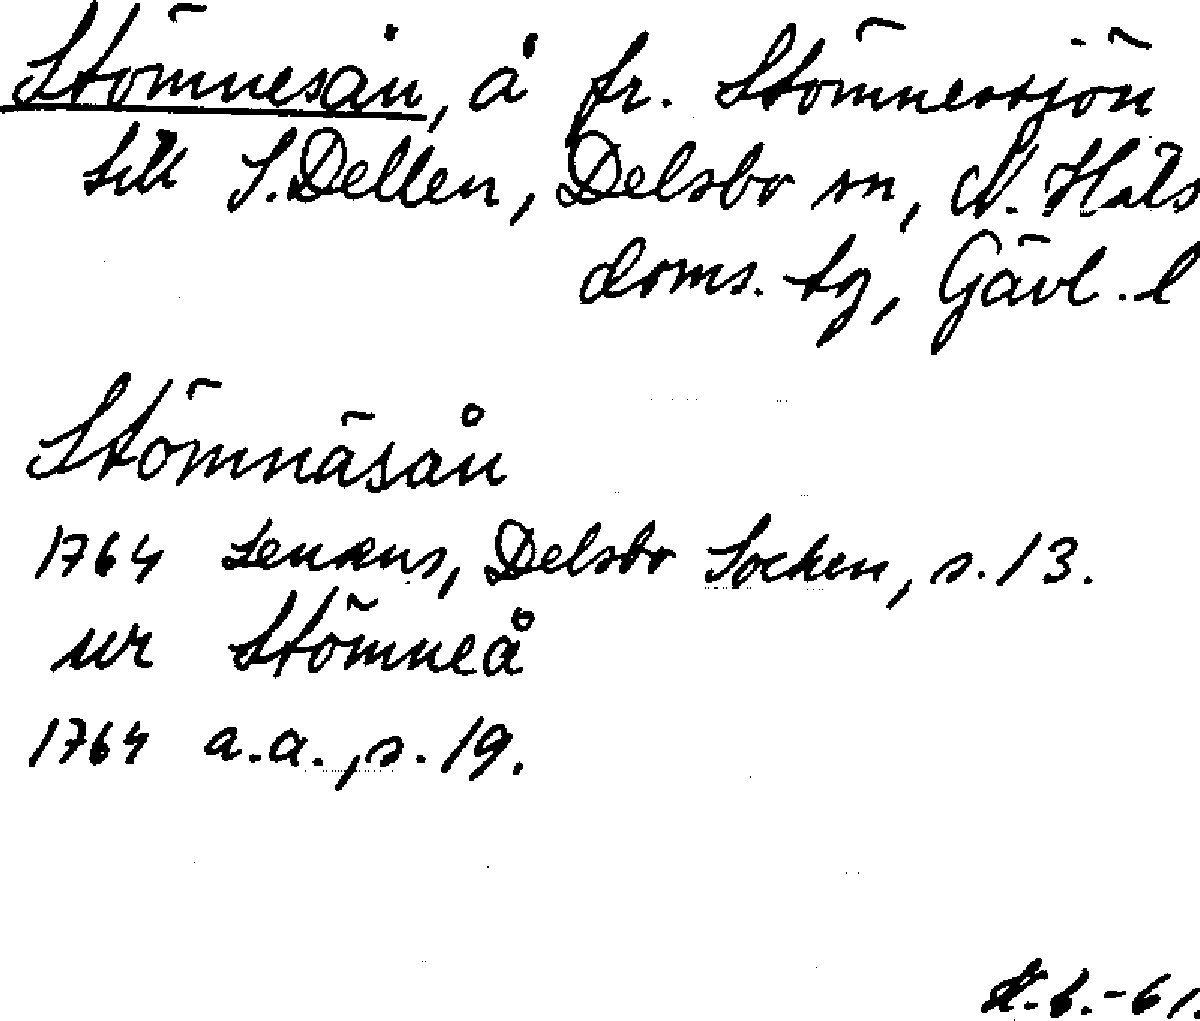 Stömnesån, å fr. Stömnessjön
till S. Dellen, Delsbo sn, N. Häls
doms. tg, Gävl. l
Stömnäsån
1764 Lenæus, Delsbo Socken, s. 13.
ur Stömneå
1764 a.a., s. 19.
-61.